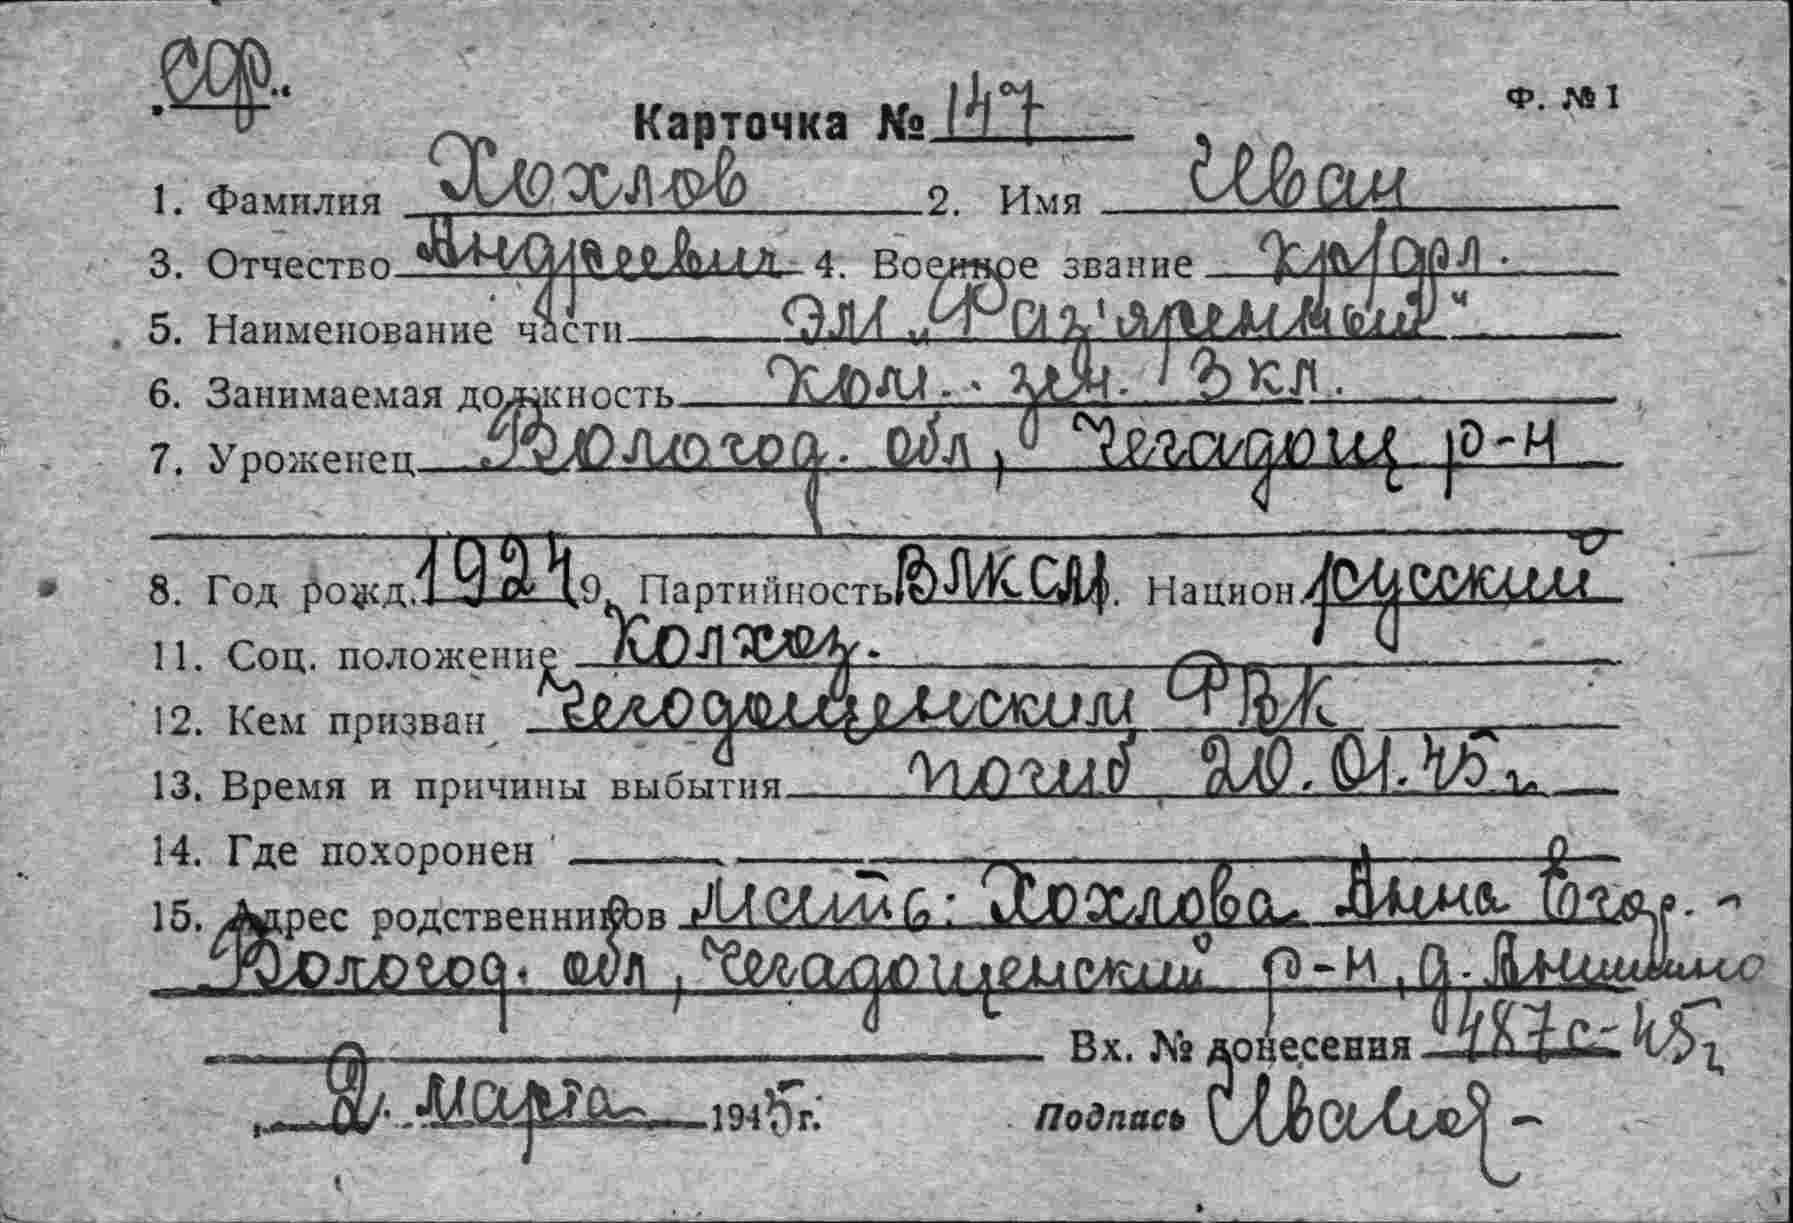 СФ..
Ф. № 1
Карточка № 147
1. Фамилия Хохлов 2. Имя Иван
3. Отчество Андреевич 4. Военное звание кр/фл.
5. Наименование части ЭМ „Раз'яренный"
6. Занимаемая должность ком. зен. 3 кл.
7. Уроженец Вологод. обл, Чегадощ р-н
8. Год рожд. 1924 9. Партийность ВЛКСМ . Национ. русский
11. Соц. положение Колхоз.
12. Кем призван Чегодощенским РВК
13. Время и причины выбытия погиб 20.01.45 г.
14. Где похоронен
15. Адрес родственников Мать: Хохлова Анна Егор. -
Вологод. обл, Чегадощенский р-н, д. Анишино
Вх. № донесения 487с-45г
2. марта 1945 г.
Подпись